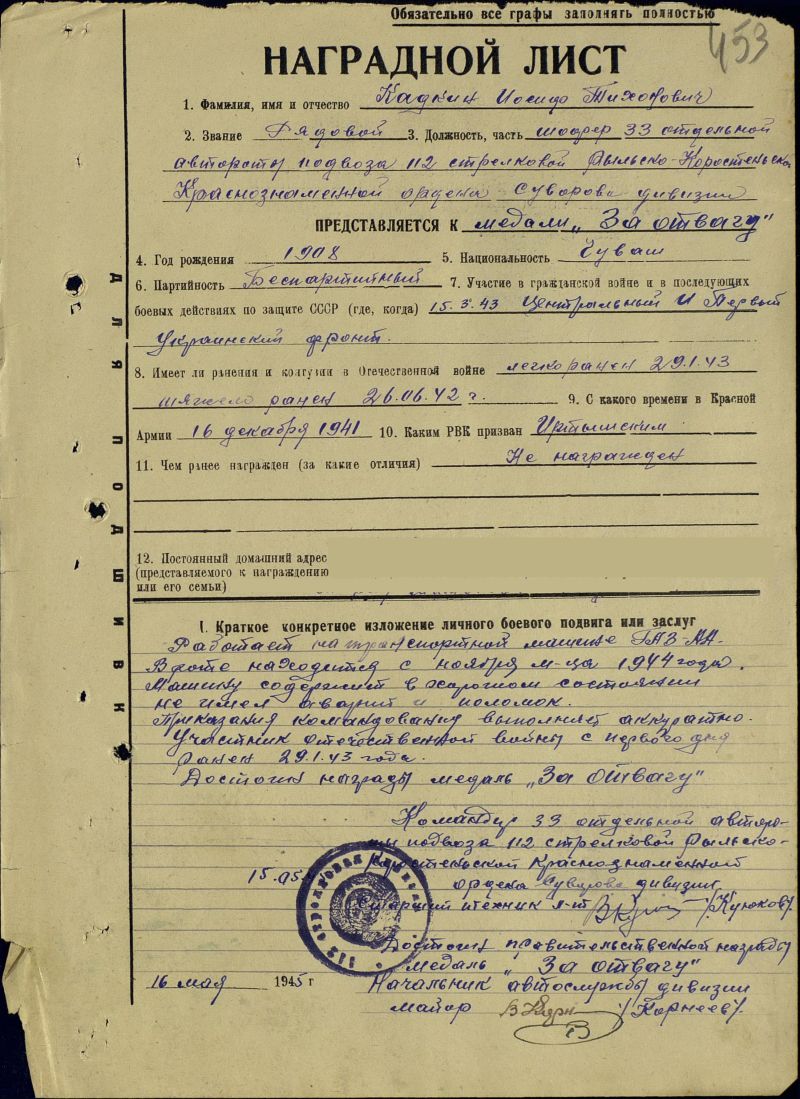 Обязательно все графы заполнять полностью
453
НАГРАДНОЙ ЛИСТ
1. Фамилия, имя и отчество Кадкин Иосиф Тихонович
2. Звание Рядовой 3. Должность, часть шофер 33 отдельной
автороты подвоза 112 стрелковой Рыльско-Коростеньско
Краснознаменной ордена Суворова дивизии
ПРЕДСТАВЛЯЕТСЯ К медали „За отвагу"
4. Год рождения 1908 5. Национальность Чуваш
6. Партийность Беспартийный 7. Участие в гражданской войне и в последующих
боевых действиях по защите СССР (где, когда) 15.3.43 Центральный и Первый
Украинский фронт.
8. Имеет ли ранения и контузии в Отечественной войне легко ранен 29.1.43
тяжело ранен 26.06.42 г. 9. С какого времени в Красной
Армии 16 декабря 1941 10. Каким РВК призван Иртышским
11. Чем ранее награжден (за какие отличия) Не награжден
12. Постоянный домашний адрес
(представляемого к награждению
или его семьи)
ДЛЯ ПОДШИВКИ
I. Краткое конкретное изложение личного боевого подвига или заслуг
Работает на транспортной машине ГАЗ-АА.
В роте находится с ноября м-ца 1944 года.
Машину содержит в хорошем состоянии
не имел аварий и поломок.
Приказания командования выполняет аккуратно.
Участник отечественной войны с первого дня
ранен 29.1.43 года.
Достоин награды медаль „За отвагу"
Командир 33 отдельной авторо-
ты подвоза 112 стрелковой Рыльско-
Коростеньской Краснознаменной
15.05
ордена Суворова дивизии
Старший техник л-т /Кулюков/
112 стрелковая
Достоин правительственной награды
медаль „За отвагу"
16 мая 1945 г Начальник автослужбы дивизии
майор /Корнеев/